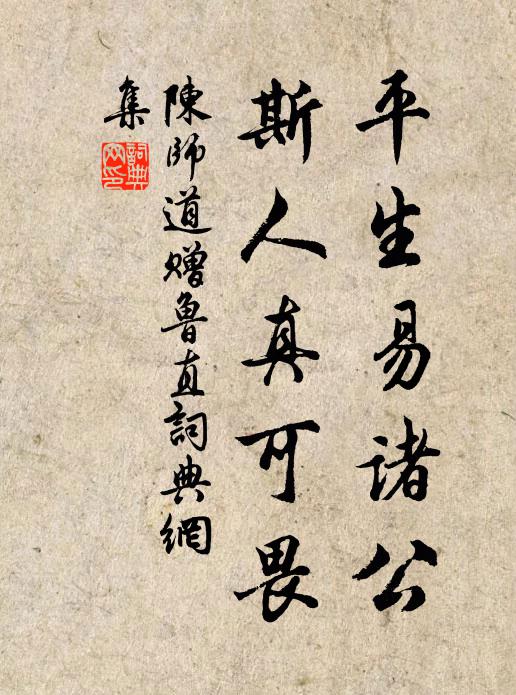 平生易诸公
斯人真可畏
陳師道贈魯直詞典網
集
詞典網印